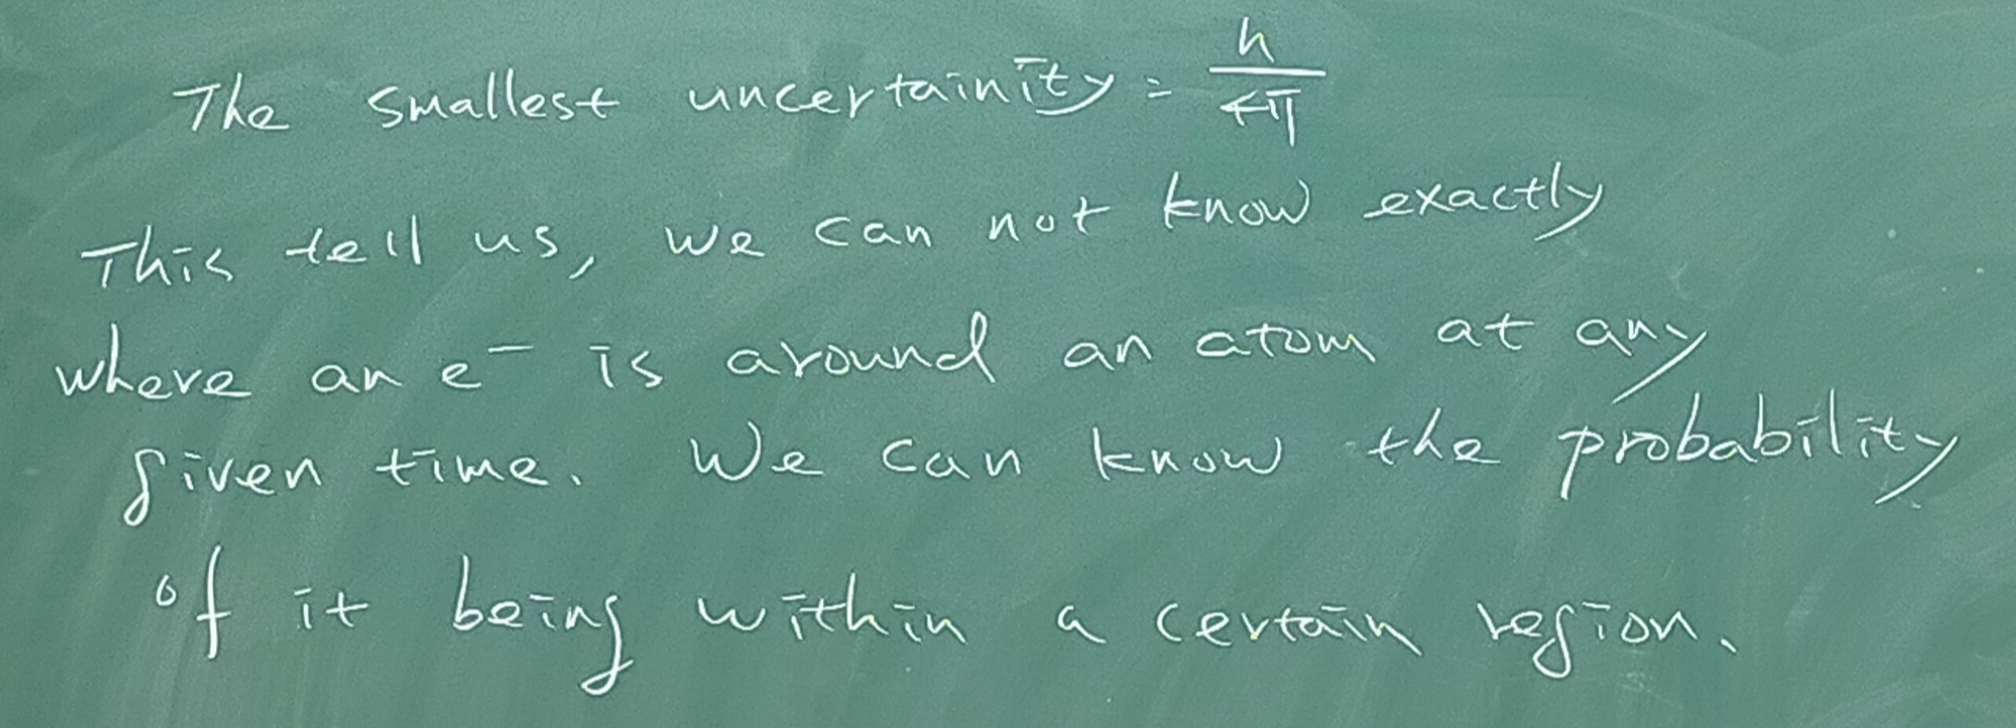 The smallest uncertainity = h/4π
This tell us, we can not know exactly
where an e⁻ is around an atom at any
given time. We can know the probability
of it being within a certain region.